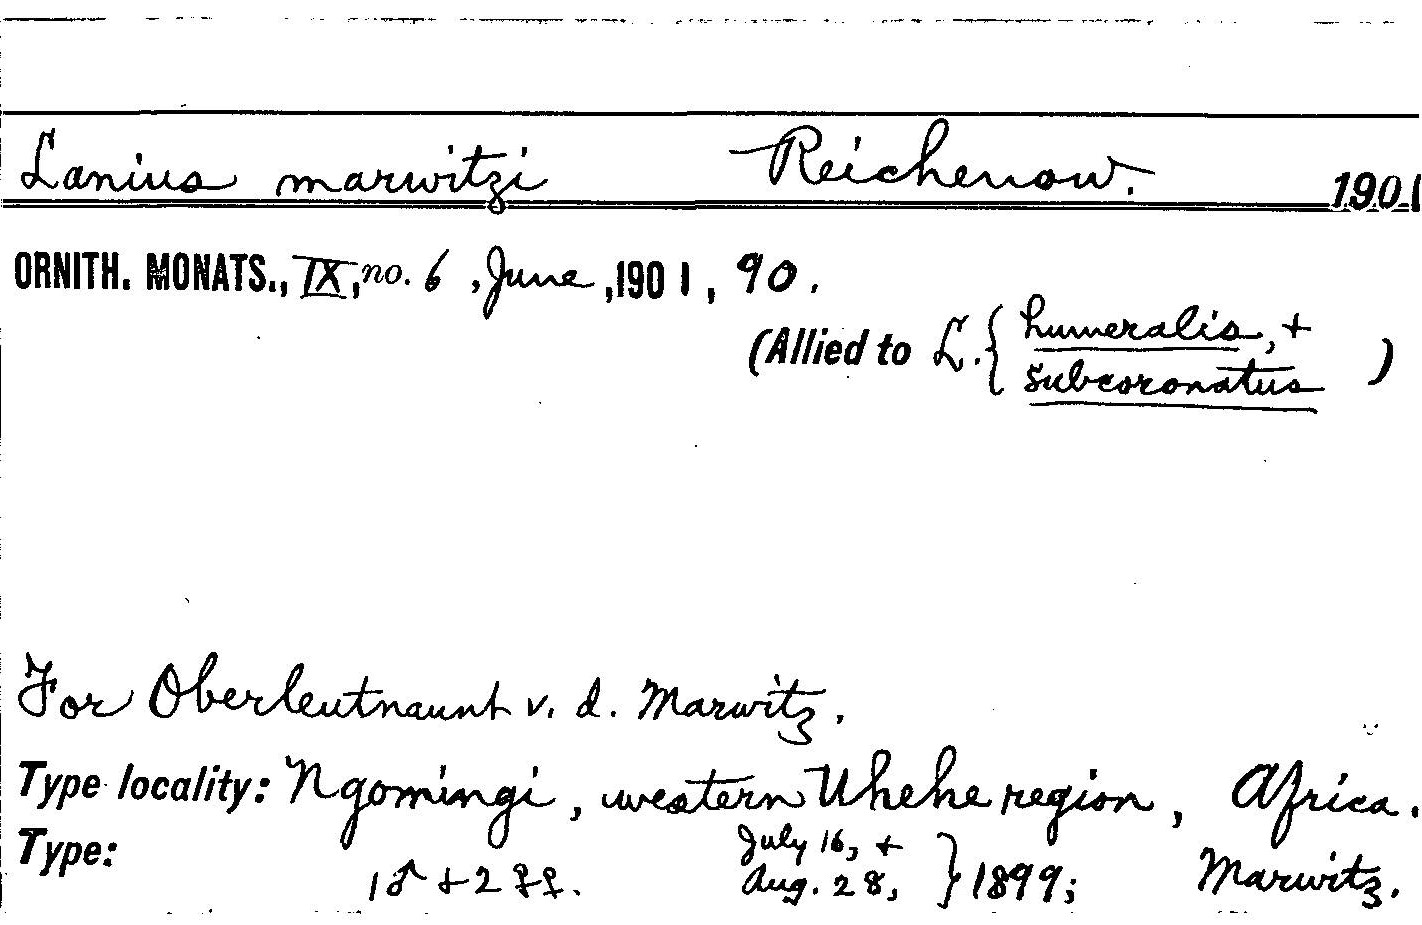 Lanius marwitzi Reichenow. 1901
ORNITH. MONATS., IX, no. 6, June, 1901, 90.
(Allied to L. { humeralis, +
subcoronatus )
For Oberleutnaunt v. d. Marwitz.
Type locality: Ngomingi, western Uhehe region, Africa.
Type: 1♂ + 2 ♀♀. July 16, +
Aug. 28, } 1899; Marwitz.